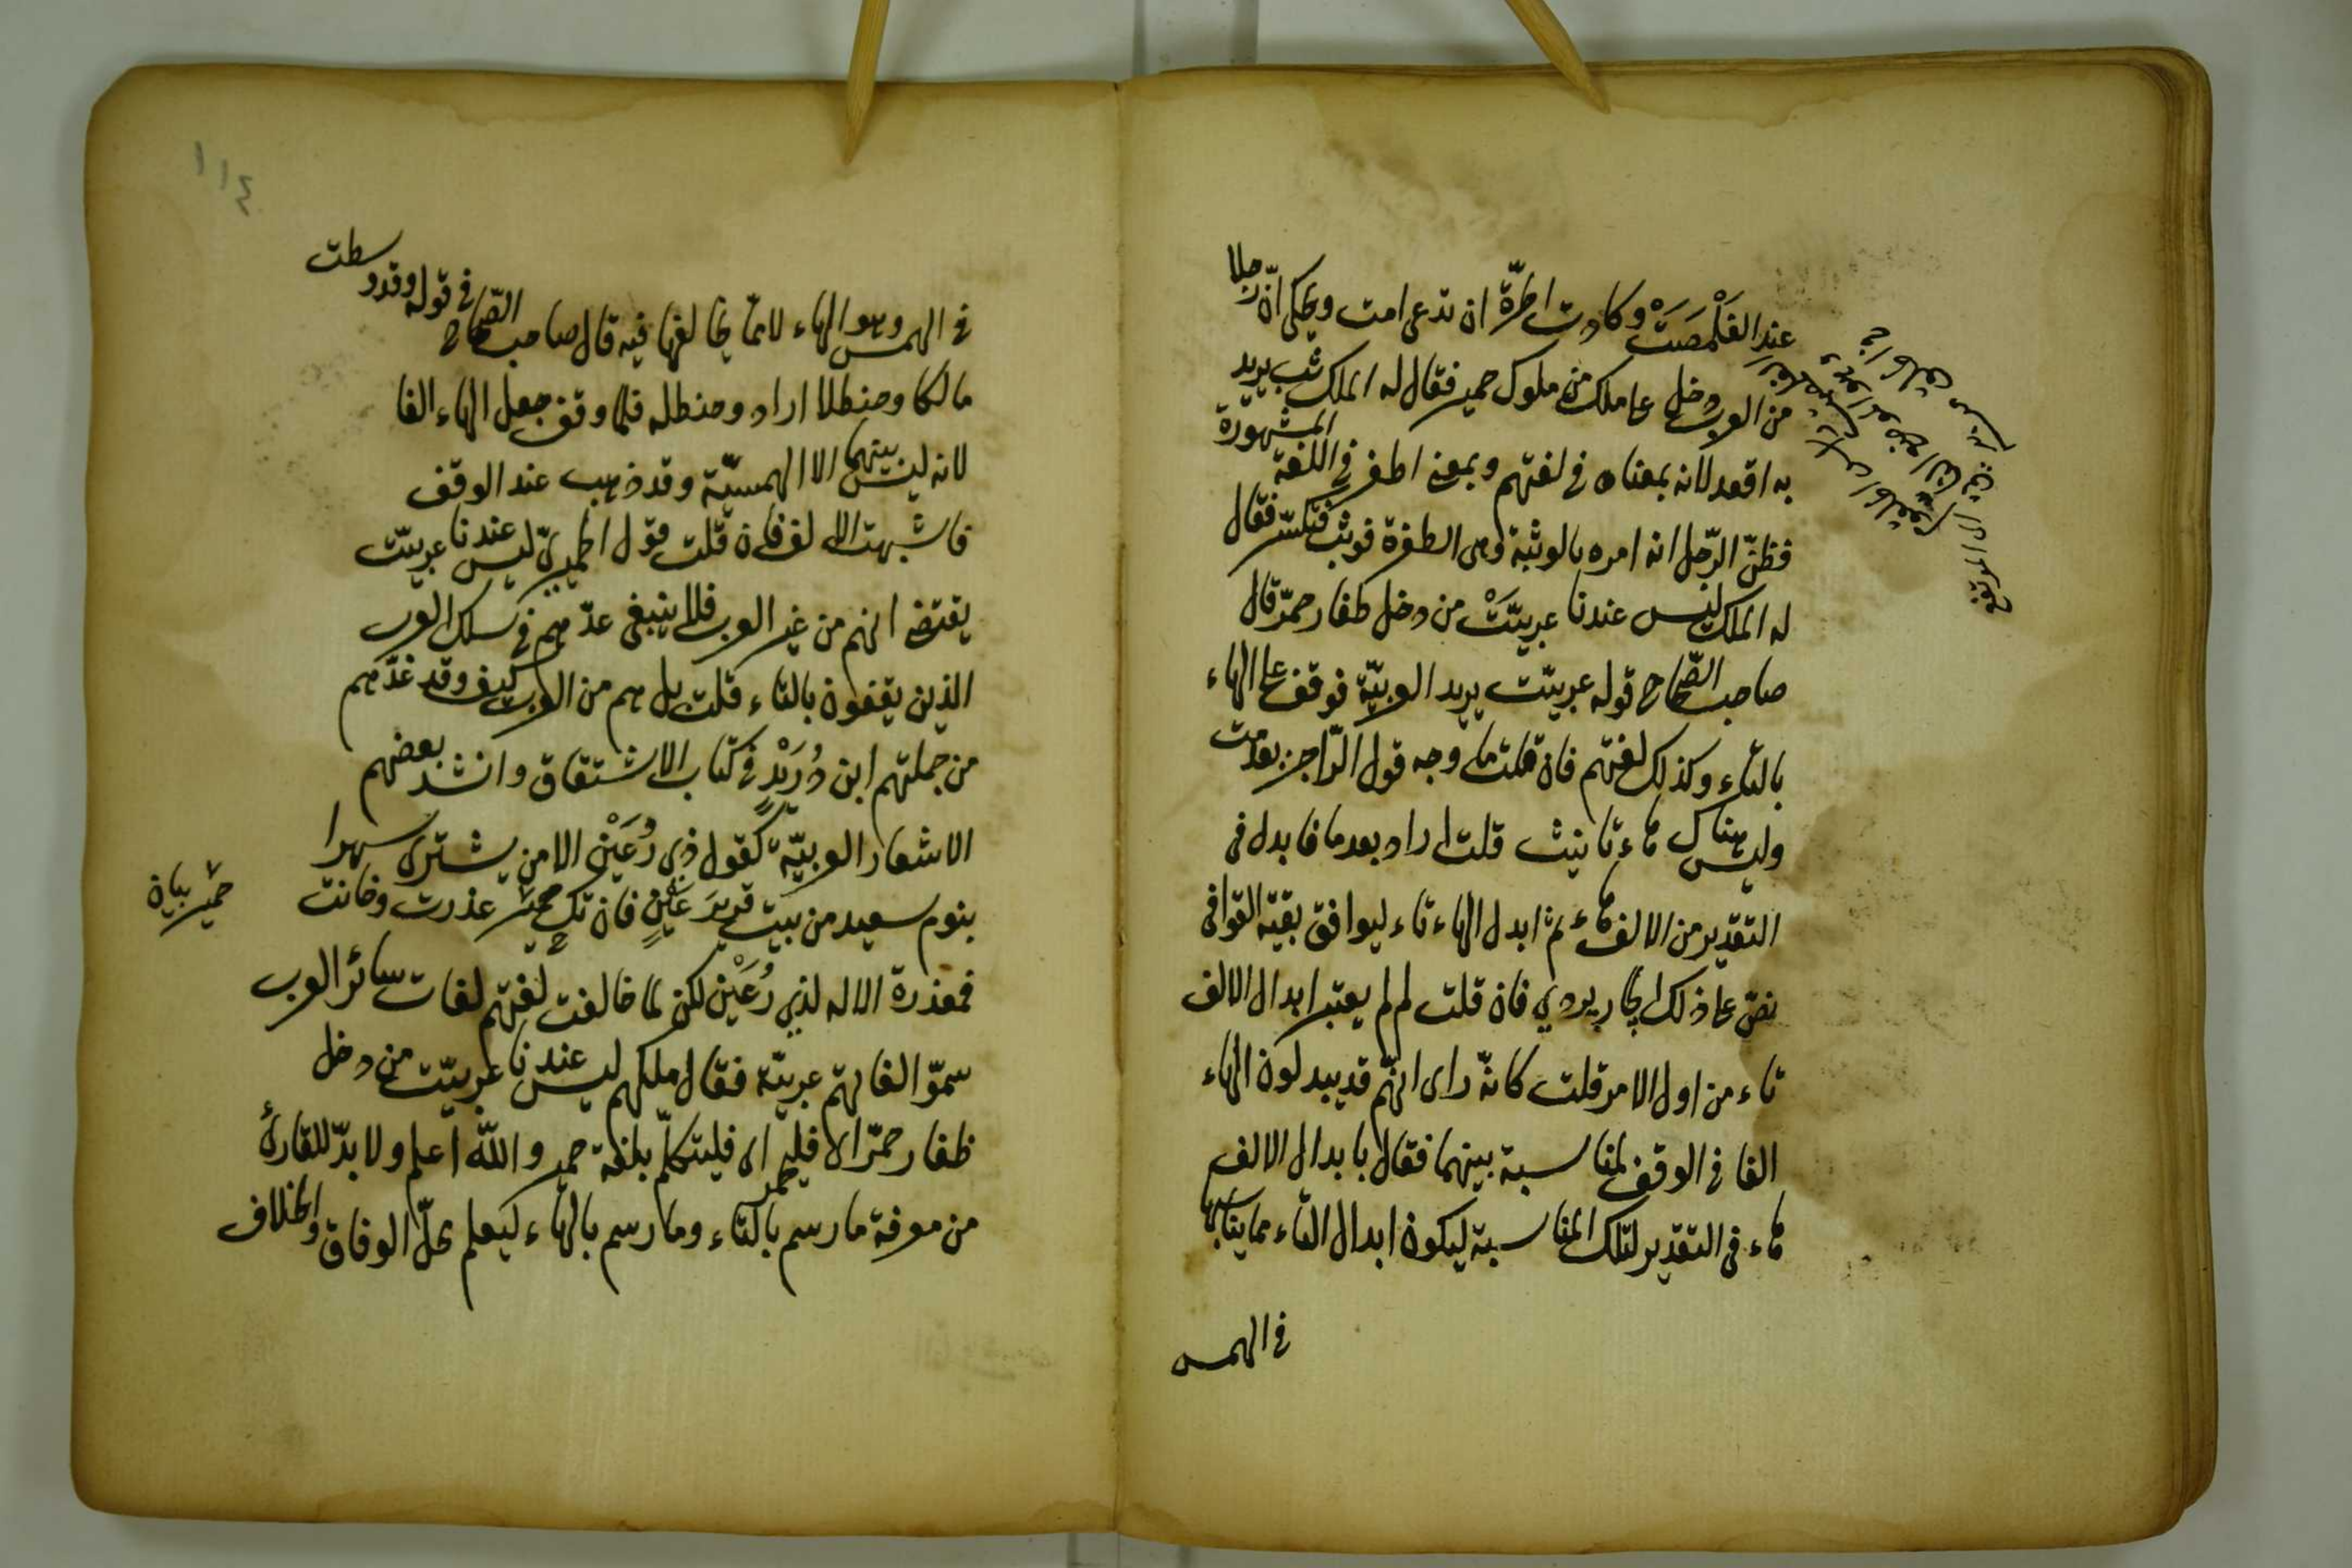 عند الغَلْصَمَتْ وكادت الحرّة ان تدعى امت ويحكى انّ رجلا
من العرب دخل على ملك من ملوك حمير فقال له الملك ثب يريد
به اقعد لانه بمعناه في لغتهم وبمعنى اطفر في اللغة المشهورة
فظنّ الرّجل انه امره بالوثبة وهى الطفرة فوثب فتكسّر فقال
له الملك ليس عندنا عربيّتْ من دخل ظفار حمّر قال
صاحب الصّحاح قوله عربيّت يريد العربيّة فوقف على الهاء
بالتاء وكذلك لغتهم فان قلت ما وجه قول الرّاجز بعدمت
وليس هناك هاء تانيث قلت اراد بعدما فابدل فى
التقدير من الالف هاء ثم ابدل الهاء تاء ليوافق بقيّة القوافى
نصّ على ذلك الجاربردي فان قلت لم لم يعتبر ابدال الالف
تاء من اول الامر قلت كانّه راى انهّم قد يبدلون الهاء
الفا فى الوقف لمناسبة بينهما فقال بابدال الالف
هاء فى التقدير لتلك المناسبة ليكون ابدال التاء مما يناسبها
في الهمس
١١٤
في الهمس وهو الهاء لا ممّا يخالفها فيه قال صاحب الصّحاح في قوله وقد وسطت
مالكا وحنظلا اراد وحنظله فلما وقف جعل الهاء الفا
لانه ليس بينهما الا الهمسيّة وقد ذهب عند الوقف
فاشبهت الالف فان قلت قول الحميريّ ليس عندنا عربيّت
يقتضى انهم من غير العرب فلا ينبغى عدّهم في سلك العرب
الذين يقفون بالتاء قلت بل هم من العرب كيف وقد عدّهم
من جملتهم ابن دُرَيْدٍ في كتاب الاشتقاق وانشد بعضهم
الاشعار العربيّة كقول ذي رُعَيْن الا من يشترى سهرا
بنوم سعيد من يبيت قرير عَيْنٍ فان تك حمير غدرت وخانت
حمير بيان
فمعذرة الاله لذي رُعَيْن لكن لما خالفت لغتهم لغات سائر العرب
سموّا لغاتهم عربيّة فقال ملكهم ليس عندنا عربيّت من دخل
ظفار حمّر الا فليحمر اى فليتكلّم بلغة حمير والله اعلم ولا بدّ للقارئ
من معرفة ما رسم بالتاء وما رسم بالهاء ليعلم محلّ الوفاق والخلاف